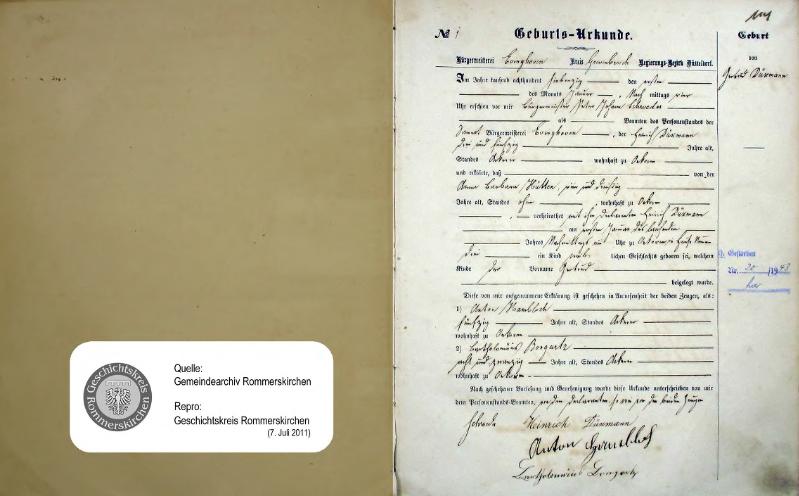 Geschichtskreis Rommerskirchen
Quelle:
Gemeindearchiv Rommerskirchen
Repro:
Geschichtskreis Rommerskirchen
(7. Juli 2011)
№ 1
Geburts-Urkunde.
Bürgermeisterei Kreis Grevenbroich Regierungs-Bezirk Düsseldorf.
Im Jahre tausend achthundert siebenzig den ersten
des Monats Januar, Nach mittags vier
Uhr erschien vor mir Bürgermeister Peter Johann
als Beamten des Personenstandes der
Bürgermeisterei, der Heinrich Dürmann
drei und fünfzig Jahre alt,
Standes Ackerer wohnhaft zu Oekoven
und erklärte, daß von der
Anna Barbara Hütten, vier und dreißig
Jahre alt, Standes ohne, wohnhaft zu Oekoven
, verheirathet mit dem Declaranten Heinrich Dürmann
am ersten Januar des laufenden
Jahres Nachmittags ein Uhr zu Oekoven Haus Num
drei ein Kind weib lichen Geschlechts geboren sei, welchem
Kinde der Vorname Gertrud
beigelegt wurde.
Diese von mir aufgenommene Erklärung ist geschehen in Anwesenheit der beiden Zeugen, als:
1) Anton
fünfzig Jahre alt, Standes Ackerer
wohnhaft zu Oekoven
2) Bartholomäus
acht und zwanzig Jahre alt, Standes Ackerer
wohnhaft zu Oekoven
Nach geschehener Vorlesung und Genehmigung wurde diese Urkunde unterschrieben von mir
dem Personenstands-Beamten, von dem Declaranten, so wie von den beiden Zeugen
Heinrich Dürmann
Anton
Bartholomäus
Geburt
von
Gertrud Dürmann
Gestorben
Nr. 20 /1948